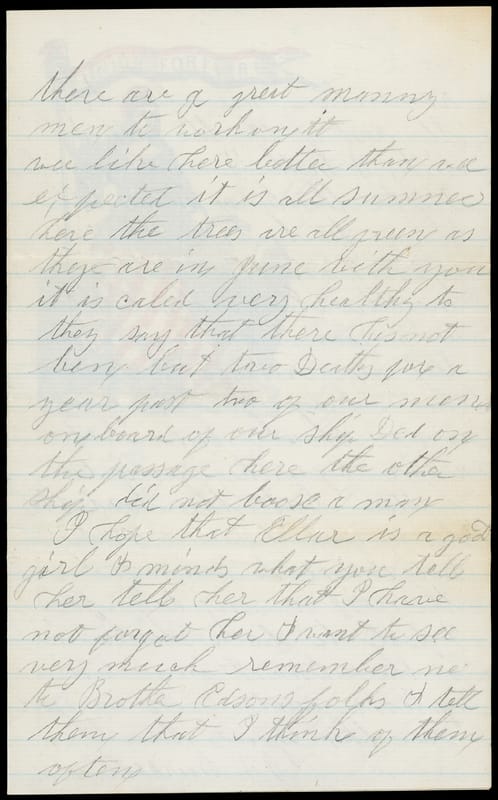 there are a great manny
men to work on itt
wee like here better than wee
expected it is all summer
here the trees are all green as
they are in June with you
it is caled very healthy to
they say that there has not
ben but two Deaths for a
year past two of our men
on board of our ship Ded on
the passage here the other
ship did not loose a man
I hope that Ellar is a good
girl & minds what you tell
her tell her that I have
not forgot her I want to see
very much remember me
to Brother Edsons folks & tell
them that I think of them
often